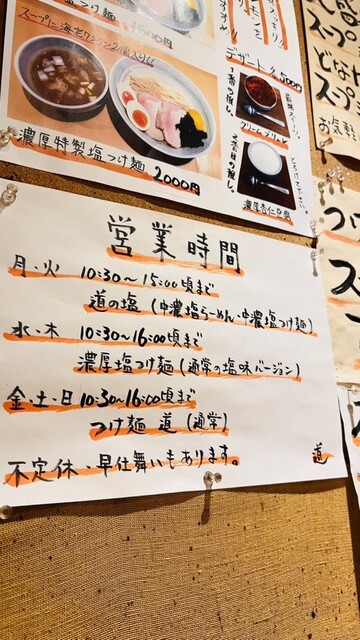 塩つけ麺 1600円
スープに海老ワンタン2個入り!!
濃厚特製塩つけ麺 2000円
デザート 各500円
クリームブリュレ
濃厚杏仁豆腐
スープ
どな
スープ
お気軽
つけ
営業時間
月・火 10:30〜15:00頃まで
道の塩 (中濃塩らーめん・中濃塩つけ麺)
水・木 10:30〜16:00頃まで
濃厚塩つけ麺 (通常の塩味バージョン)
金・土・日 10:30〜16:00頃まで
つけ麺 道 (通常)
不定休・早仕舞いもあります。 道